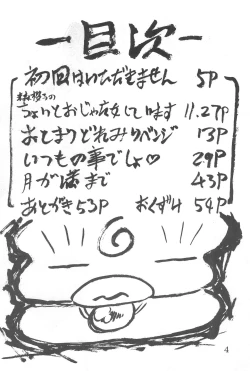 一目次一
初回はいただきません 5P
ちょいとおじゃましています 11.27P
おとまりどれみリベンジ 13P
いつもの事でしょ♡ 29P
月が満まで 43P
あとがき53P おくずけ 54P
4